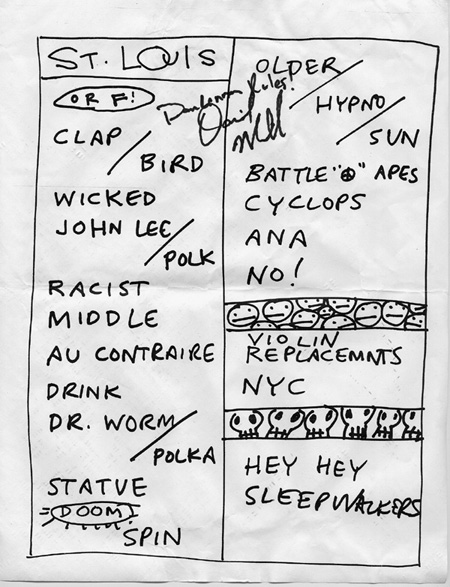 ST. LOUIS
OR F!
CLAP /
BIRD
WICKED
JOHN LEE /
POLK
RACIST
MIDDLE
AU CONTRAIRE
DRINK
DR. WORM /
POLKA
STATUE
DOOM
SPIN
OLDER /
Rules!
HYPNO /
SUN
BATTLE "⊕" APES
CYCLOPS
ANA
NO!
VIOLIN
REPLACEMNTS
NYC
HEY HEY
SLEEPWALKERS